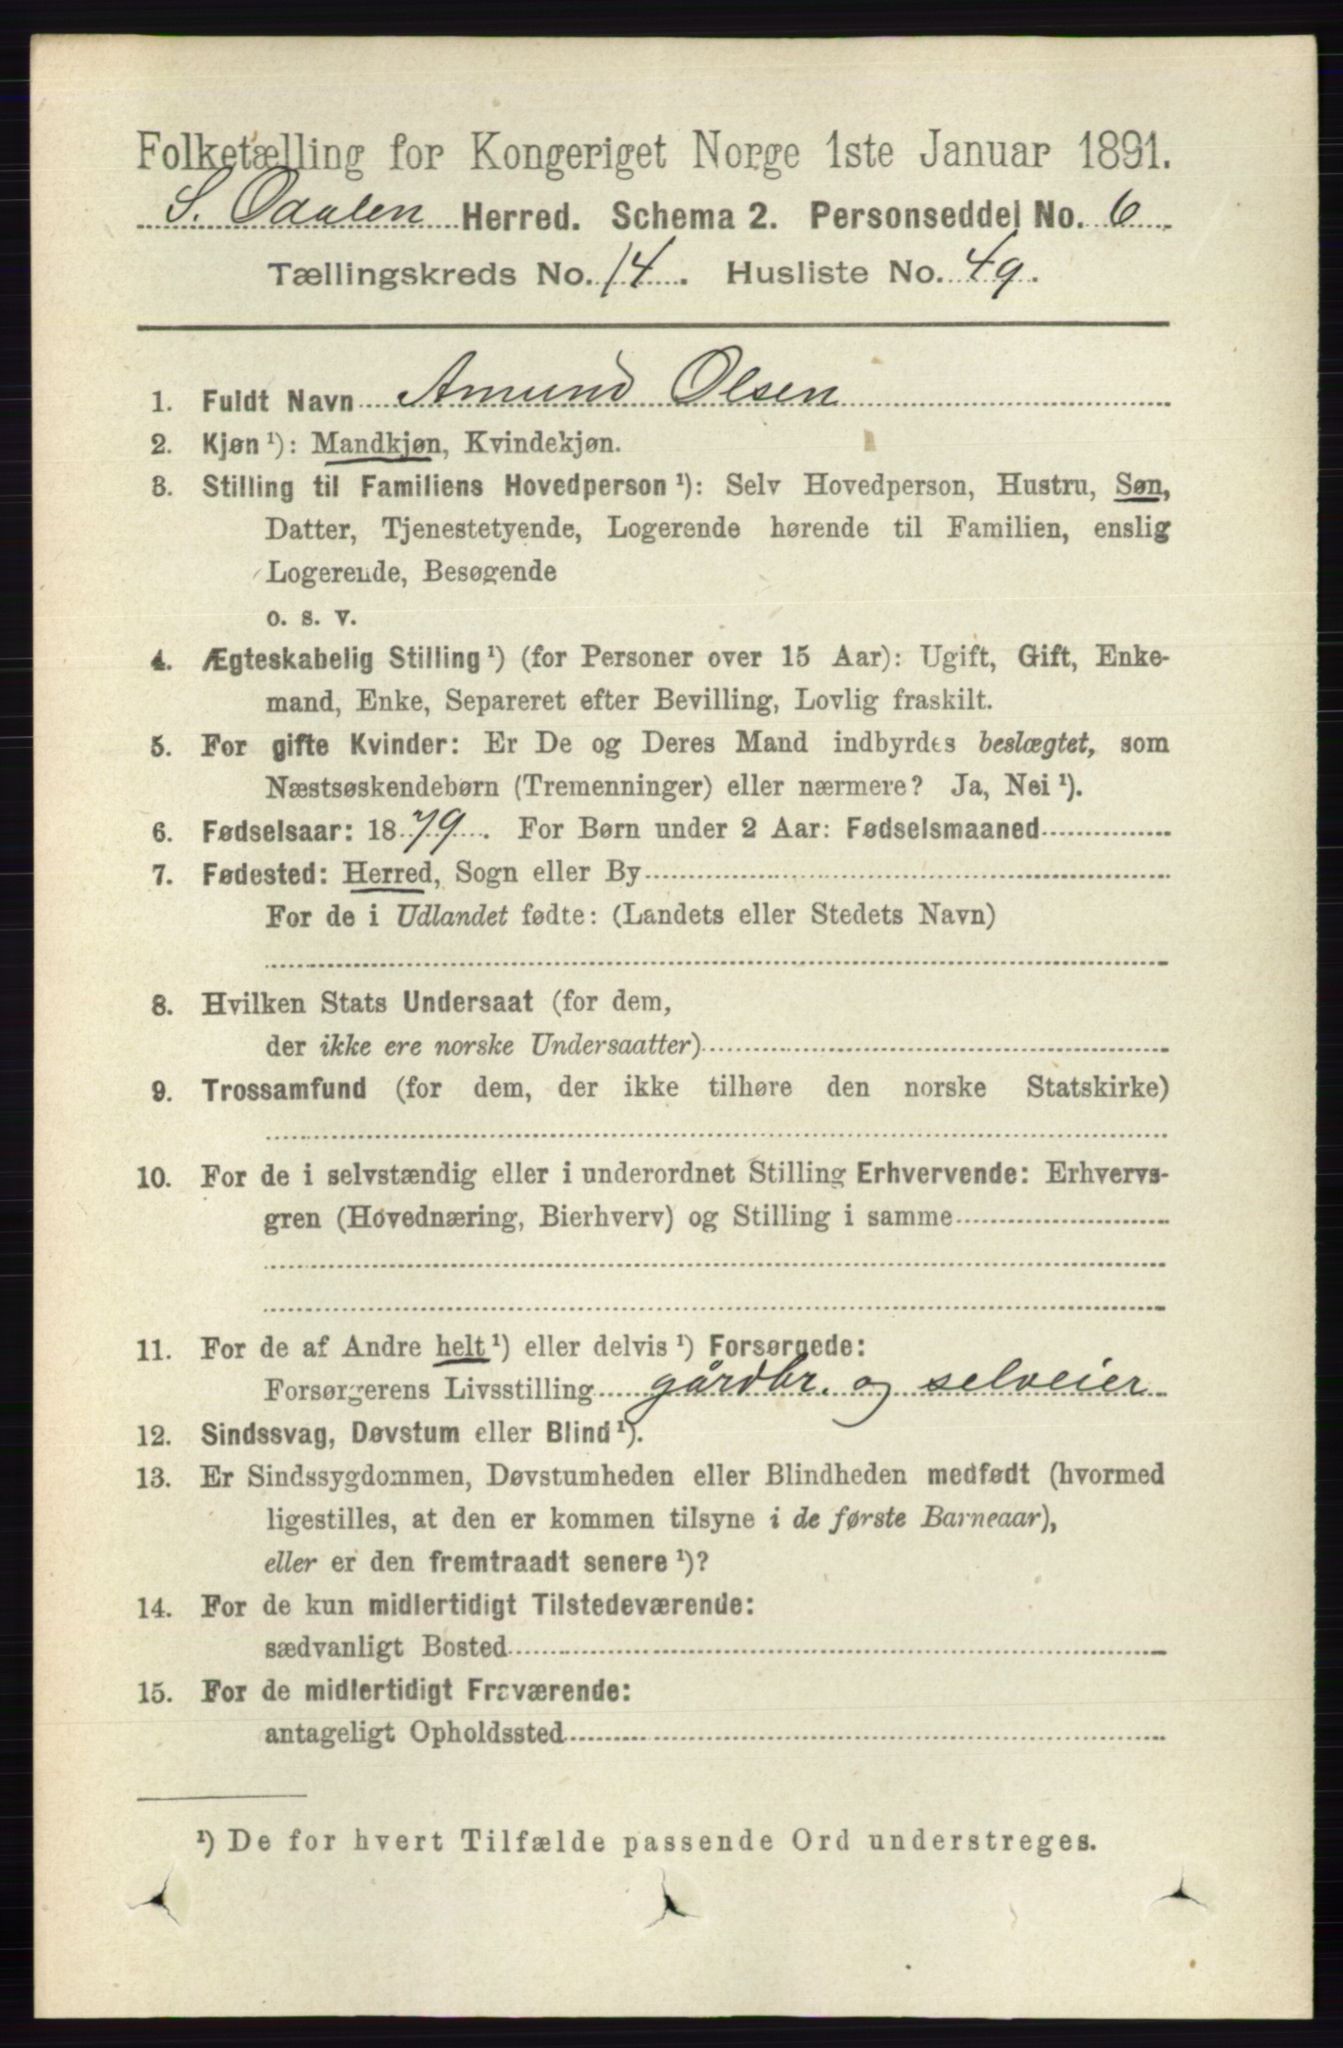 Folketælling for Kongeriget Norge 1ste Januar 1891.
S. Odalen Herred. Schema 2. Personseddel No. 6
Tællingskreds No. 14. Husliste No. 49.
1. Fuldt Navn Amund Olsen
2. Kjøn¹): Mandkjøn, Kvindekjøn.
3. Stilling til Familiens Hovedperson¹): Selv Hovedperson, Hustru, Søn,
Datter, Tjenestetyende, Logerende hørende til Familien, enslig
Logerende, Besøgende
o. s. v.
4. Ægteskabelig Stilling¹) (for Personer over 15 Aar): Ugift, Gift, Enke-
mand, Enke, Separeret efter Bevilling, Lovlig fraskilt.
5. For gifte Kvinder: Er De og Deres Mand indbyrdes beslægtet, som
Næstsøskendebørn (Tremenninger) eller nærmere? Ja, Nei¹).
6. Fødselsaar: 1879. For Børn under 2 Aar: Fødselsmaaned
7. Fødested: Herred, Sogn eller By
For de i Udlandet fødte: (Landets eller Stedets Navn)
8. Hvilken Stats Undersaat (for dem,
der ikke ere norske Undersaatter)
9. Trossamfund (for dem, der ikke tilhøre den norske Statskirke)
10. For de i selvstændig eller i underordnet Stilling Erhvervende: Erhvervs-
gren (Hovednæring, Bierhverv) og Stilling i samme
11. For de af Andre helt¹) eller delvis¹) Forsørgede:
Forsørgerens Livsstilling gårdbr. og selveier
12. Sindssvag, Døvstum eller Blind¹).
13. Er Sindssygdommen, Døvstumheden eller Blindheden medfødt (hvormed
ligestilles, at den er kommen tilsyne i de første Barneaar),
eller er den fremtraadt senere¹)?
14. For de kun midlertidigt Tilstedeværende:
sædvanligt Bosted
15. For de midlertidigt Fraværende:
antageligt Opholdssted
¹) De for hvert Tilfælde passende Ord understreges.